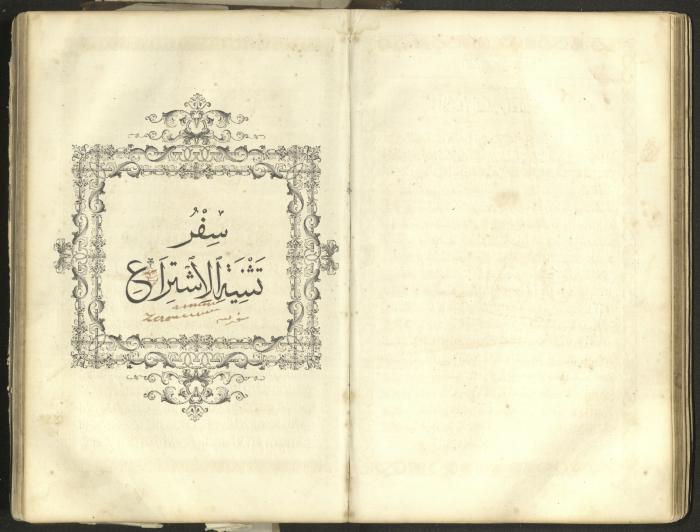 سِفْرُ
تَثْنِيَةِ ٱلِٱشْتِرَاعِ